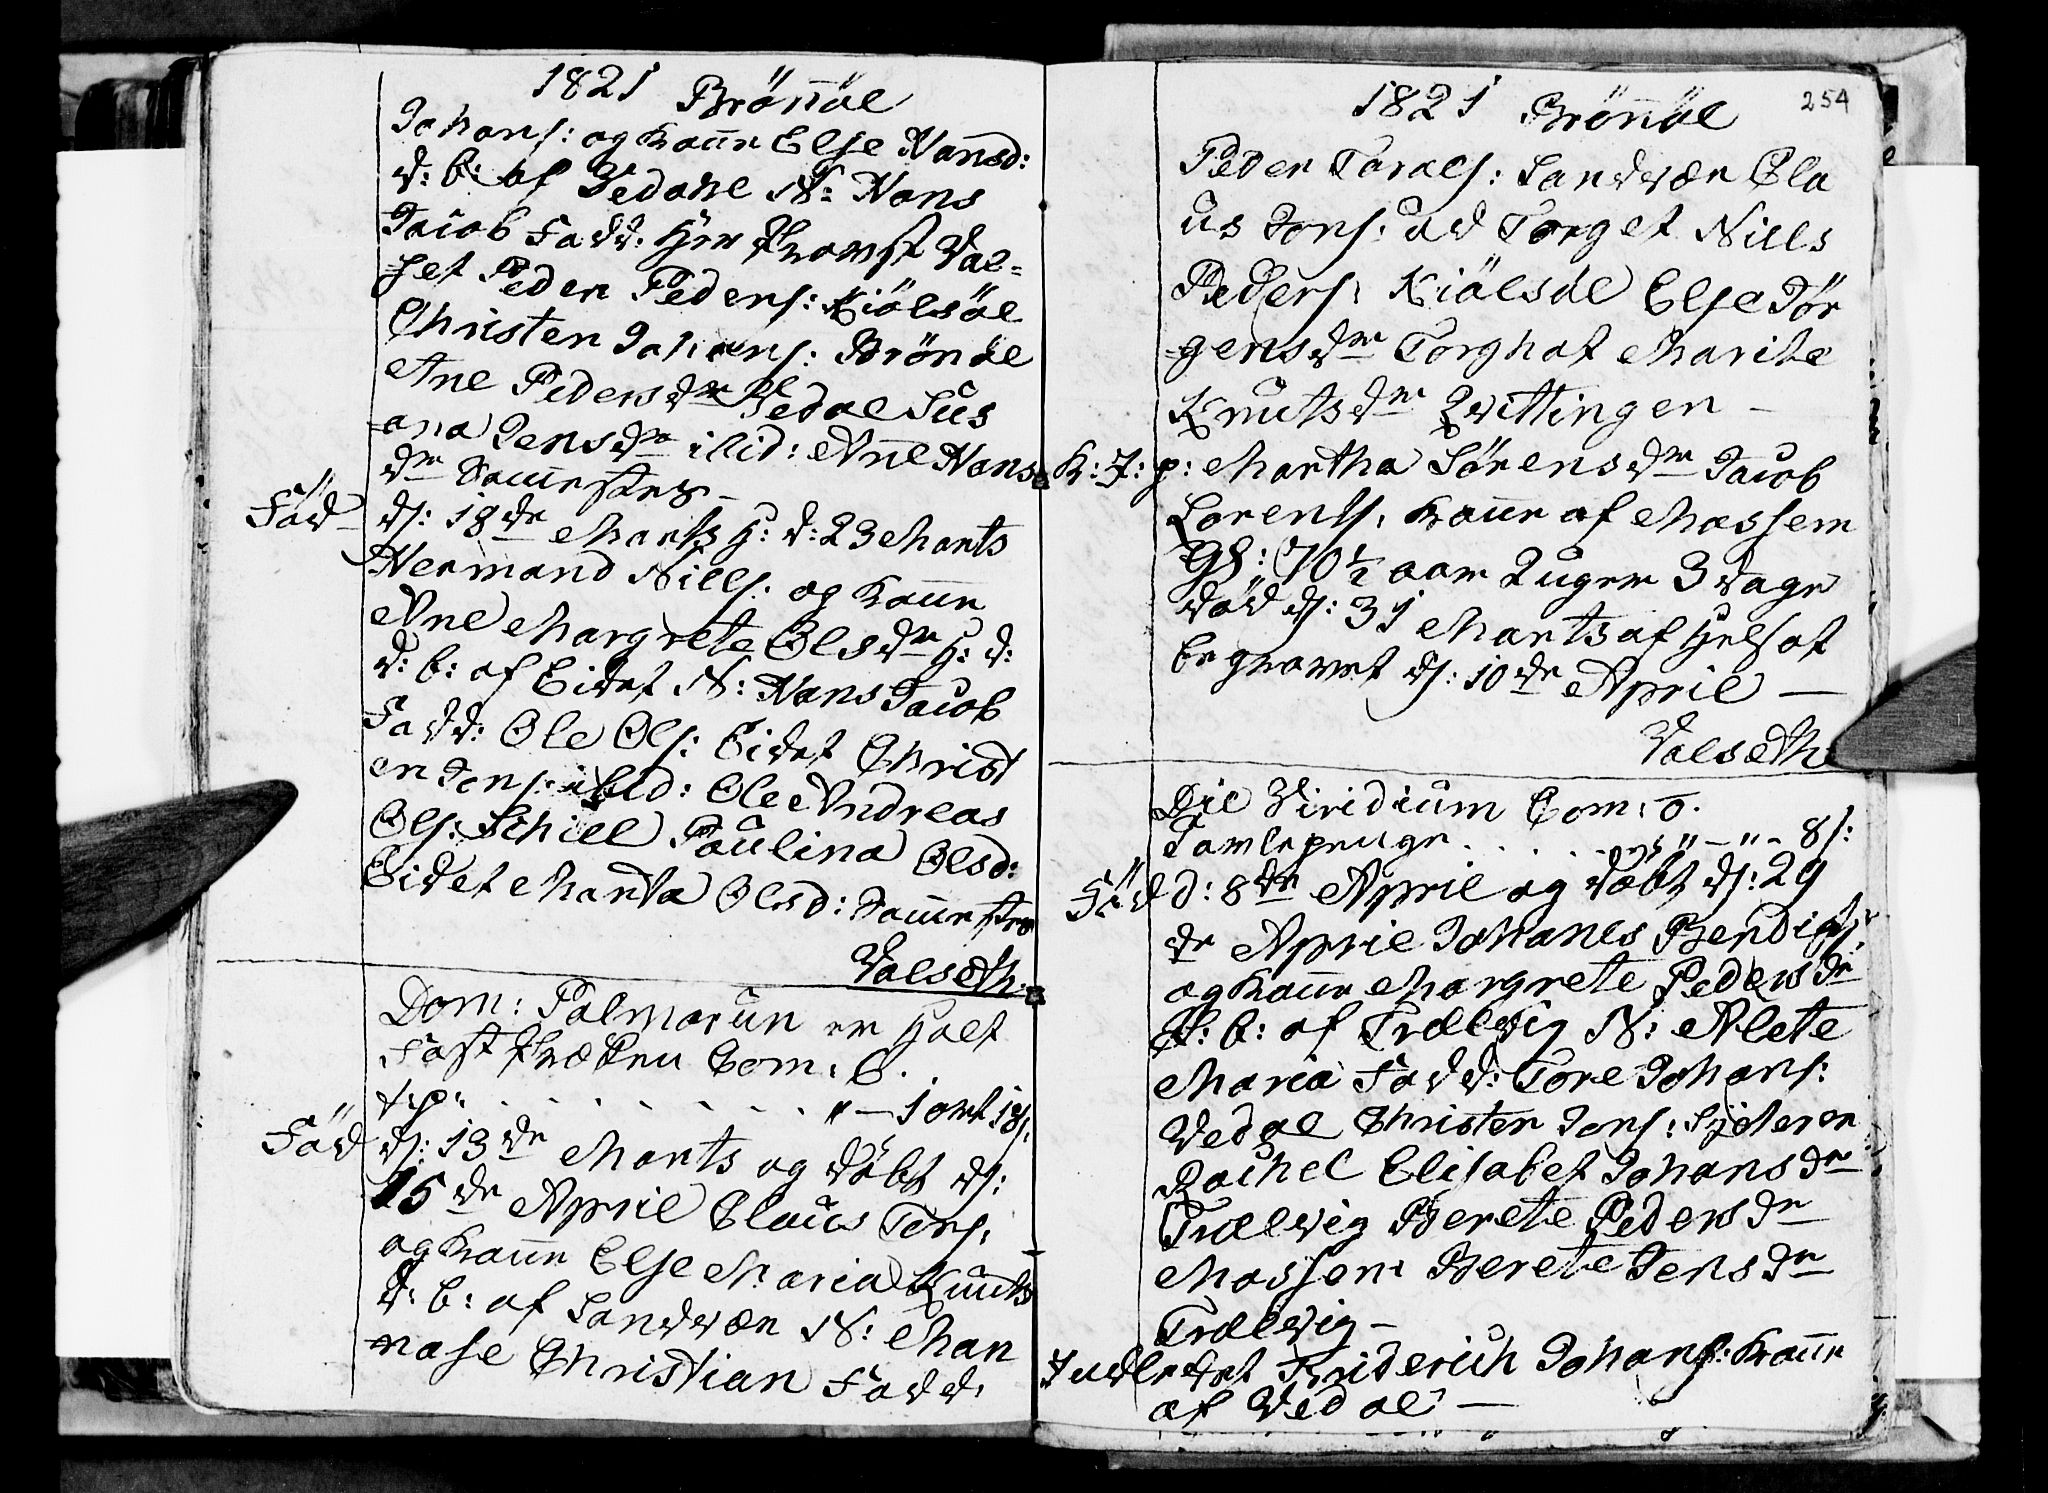 1821 Brönöe
Johans: og Kone Else Hansd:
d: b: af Vedahl N: Hans
Jacob Fadd: Hr Provst Val-
set Peder Peders: Kiölsöe
Christen Johans: Brönöe
Ane Pedersdr Vedal Sus
ana Jensdr ibid: Ane Hans
dr
Föd d: 18de Marts H: d: 23 Marts
Hermand Nills: og Kone
Ane Margrete Olsdr H: d:
d: b: af Eidet N: Hans Jacob
Fadd: Ole Ols: Eidet Christ
en Jons: ibid: Ole Andreas
Ols: Schiell Paulina Olsd:
Eidet Marta Olsd:
Valseth.
Dom: Palmarun er Holt
Com: 6.
t:p: . . . . . . . . " — 1 ort 18 s:
Föd d: 13de Marts og döbt d:
15de April Claus Tors:
og Kone Else Maria Knuds
d: b: af Sandvær N: Man
nase Christian Fadd:
1821 Brönöe 254
Peder Tarals: Sandvær Cla
us Jons: ad Torget Nills
Peders: Kiölsöe Else Jör
gensdr Torghat Marite
Knutsdr Qvittingen —
K: J: p: Martha Sörensdr Jacob
Lorents: Kone af Mossem
Gl: 70 1/2 aar 2 uger 3 dage
död d: 31 Marts af Helsot
begravet d: 10de April —
Valseth
Die Viridium Com: 0.
Tavlepenge . . . . . . " — " — 8 s:
Föd d: 8de April og döbt d: 29
de April Johanes Bendigs:
og Kone Margrete Pedersdr
d: b: af Trælvig N: Alete
Maria Fadd: Tore Johans:
Vedal Christen Jons:
Rachel Elisabet Johansdr
Trælvig Berete Pedersdr
Mossem Berete Jensdr
Trælvig —
Indledet Friderich Johans: Kone
af Vedal —